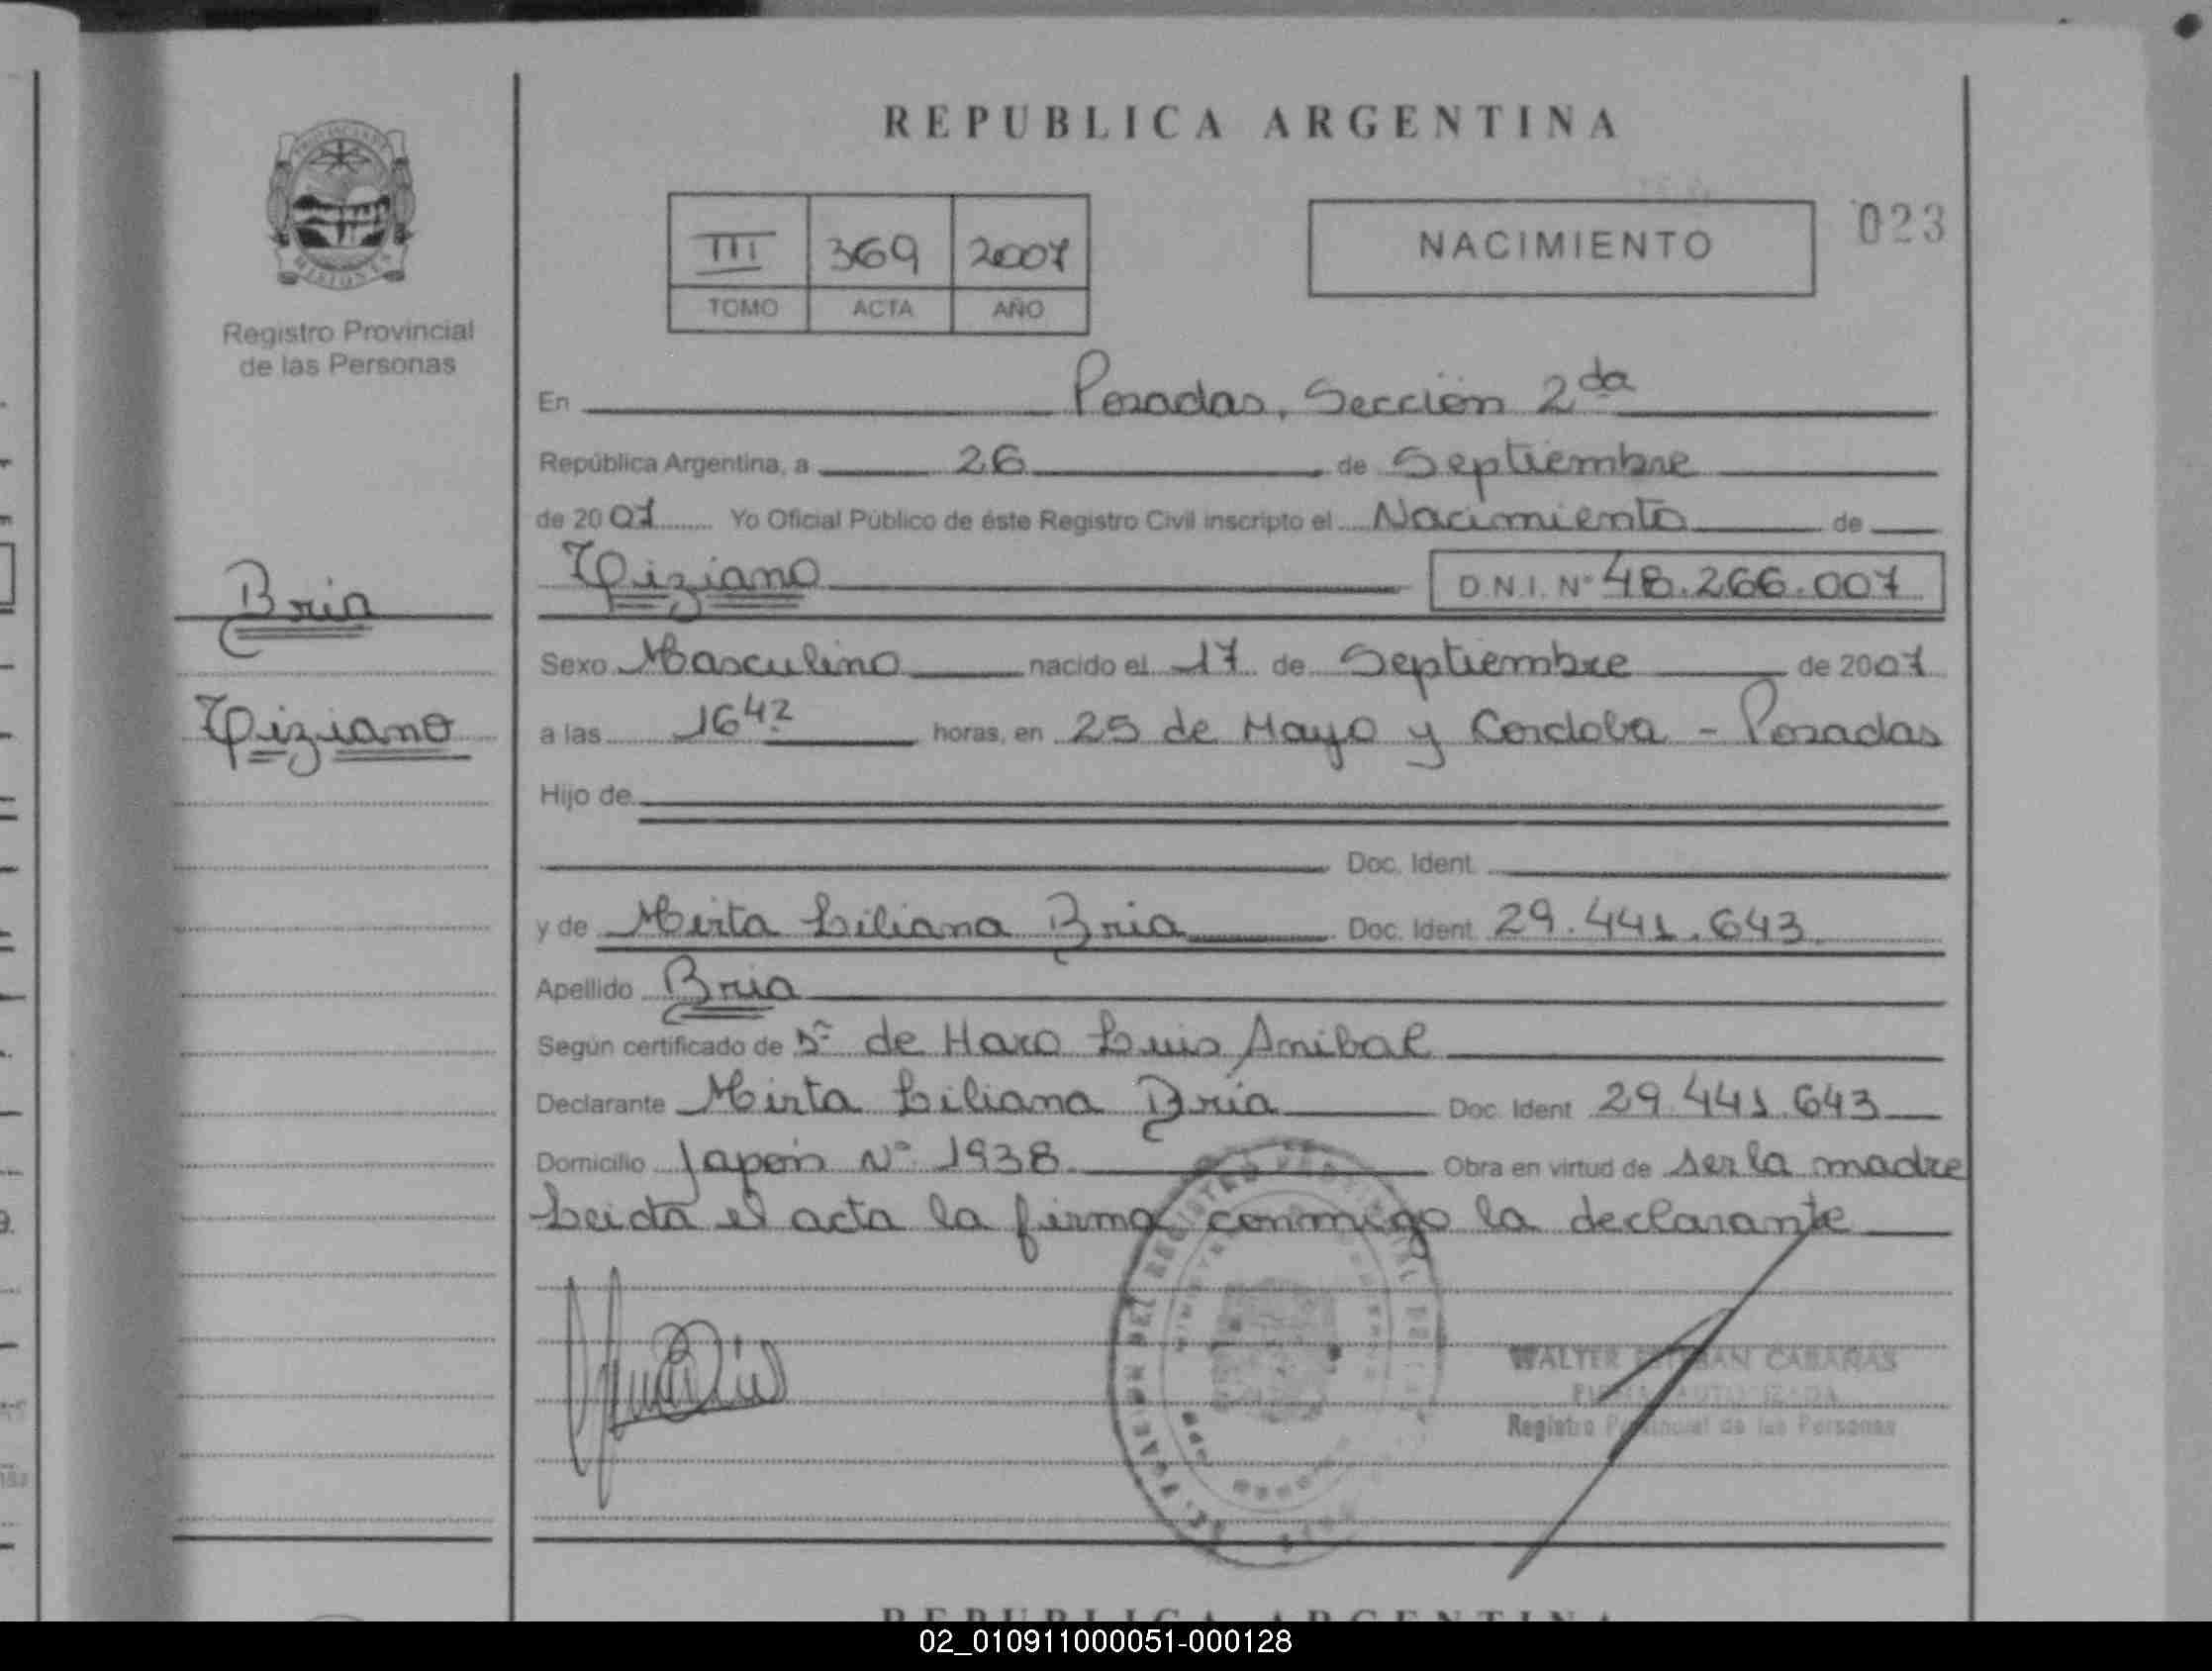 REPUBLICA ARGENTINA
PROVINCIA DE
MISIONES
Registro Provincial
de las Personas
III 369 2007
TOMO ACTA AÑO
NACIMIENTO
023
En Posadas, Sección 2da
República Argentina, a 26 de Septiembre
de 2007 Yo Oficial Público de éste Registro Civil inscripto el Nacimiento de
Tiziano D.N.I. Nº 48.266.007
Bria
Tiziano
Sexo Masculino nacido el 17 de Septiembre de 2007
a las 16 42 horas, en 25 de Mayo y Cordoba - Posadas
Hijo de
Doc. Ident.
y de Mirta Liliana Bria Doc. Ident. 29.441.643
Apellido Bria
Según certificado de Dr de Haro Luis Anibal
Declarante Mirta Liliana Bria Doc. Ident 29.441.643
Domicilio Japón Nº 1938 Obra en virtud de ser la madre
Leida el acta la firma conmigo la declarante
WALTER CABAÑAS
Registro Provincial de las Personas
REPUBLICA ARGENTINA
02_010911000051-000128